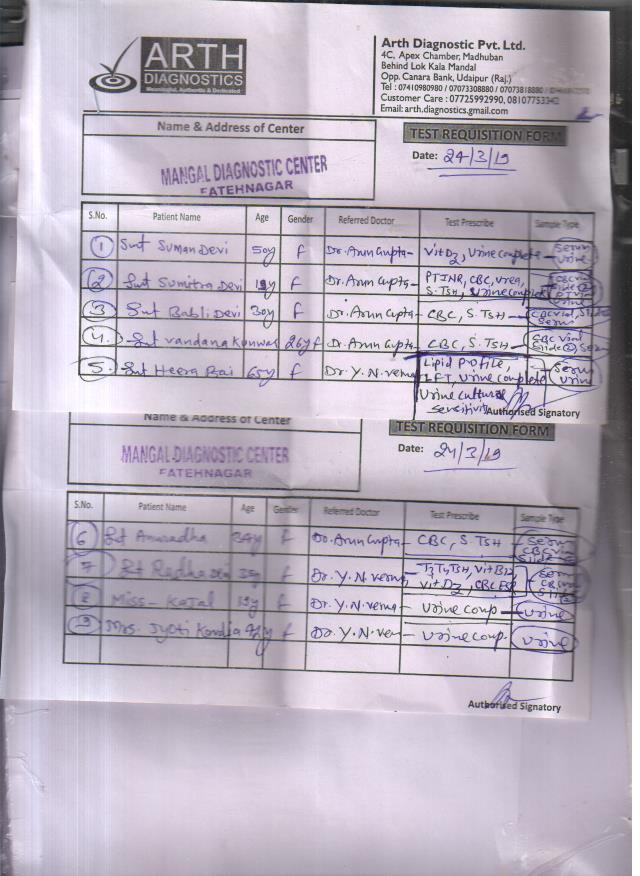 ARTH
DIAGNOSTICS
Meaningful, Authentic & Dedicated
Arth Diagnostic Pvt. Ltd.
4C, Apex Chamber, Madhuban
Behind Lok Kala Mandal
Opp. Canara Bank, Udaipur (Raj.)
Tel : 07410980780 / 07073308880 / 07073818880 /
Customer Care : 07725992990, 08107753342
Email: arth.diagnostics.gmail.com
Name & Address of Center
TEST REQUISITION FORM
MANGAL DIAGNOSTIC CENTER
FATEHNAGAR
Date: 24/3/19
S.No. Patient Name Age Gender Referred Doctor Test Prescribe Sample Type
1 Smt Suman Devi 50y f Dr. Arun Gupta - Vit D3, Urine complete - Serum Urine
2 Smt Sumitra Devi f Dr. Arun Gupta - PTINR, CBC, Urea, S. TSH, Urine complete
3 Smt Babli Devi 30y f Dr. Arun Gupta - CBC, S. TSH - CBC vial, Slide Serum
4. Smt Vandana Kunwar 26y f Dr. Arun Gupta - CBC, S. TSH - CBC vial Slide Serum
5. Smt Heera Bai 65y f Dr. Y. N. Verma Lipid Profile, LFT, Urine complete Urine Culture sensitivity Serum Urine
Authorised Signatory
Name & Address of Center
TEST REQUISITION FORM
MANGAL DIAGNOSTIC CENTER
FATEHNAGAR
Date: 24/3/19
S.No. Patient Name Age Gender Referred Doctor Test Prescribe Sample Type
6 Smt Anuradha 34y f Dr. Arun Gupta - CBC, S. TSH - Serum CBC vial Slide
7 f Dr. Y. N. Verma - T3 T4 TSH, Vit B12 Vit D3, CBC ESR Serum
8 Miss - Kajal 19y f Dr. Y. N. Verma - Urine comp - Urine
9 Mrs. Jyoti f Dr. Y. N. Verma - Urine comp. Urine
Authorised Signatory